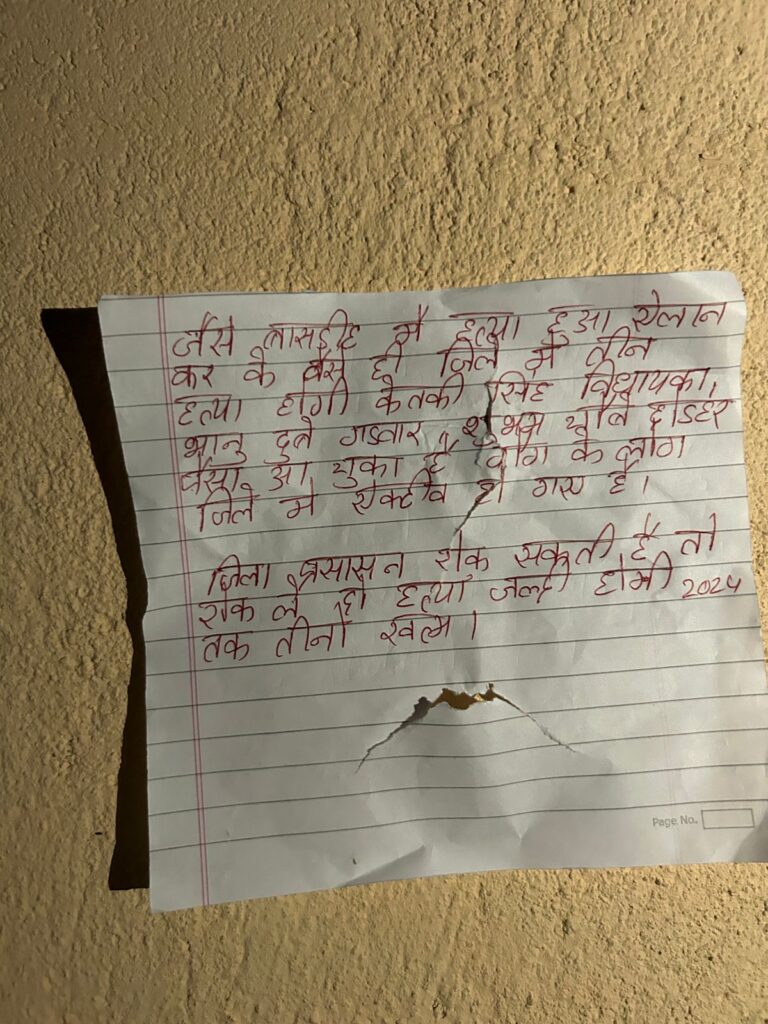 जैसे लासडीह मे हत्या हुआ ऐलान
कर के वैसे ही जिले मे तीन
हत्या होगी केतकी सिंह विधायका,
भानु दुबे गडवार, शुभम चौबे
पैसा आ चुका है के लोग
जिले मे ऐक्टीव हो गए है।
जिला प्रसासन रोक सकती है तो
रोक ले दो हत्या जल्दी होगी 2024
तक तीनो खत्म।
Page No.